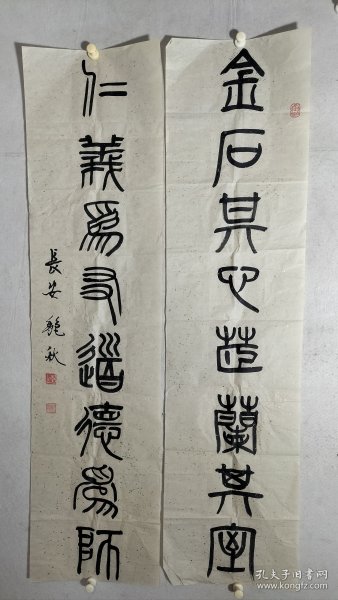 金石其心芝蘭其室
仁義為友道德為師
長安 艷秋
孔夫子旧书网